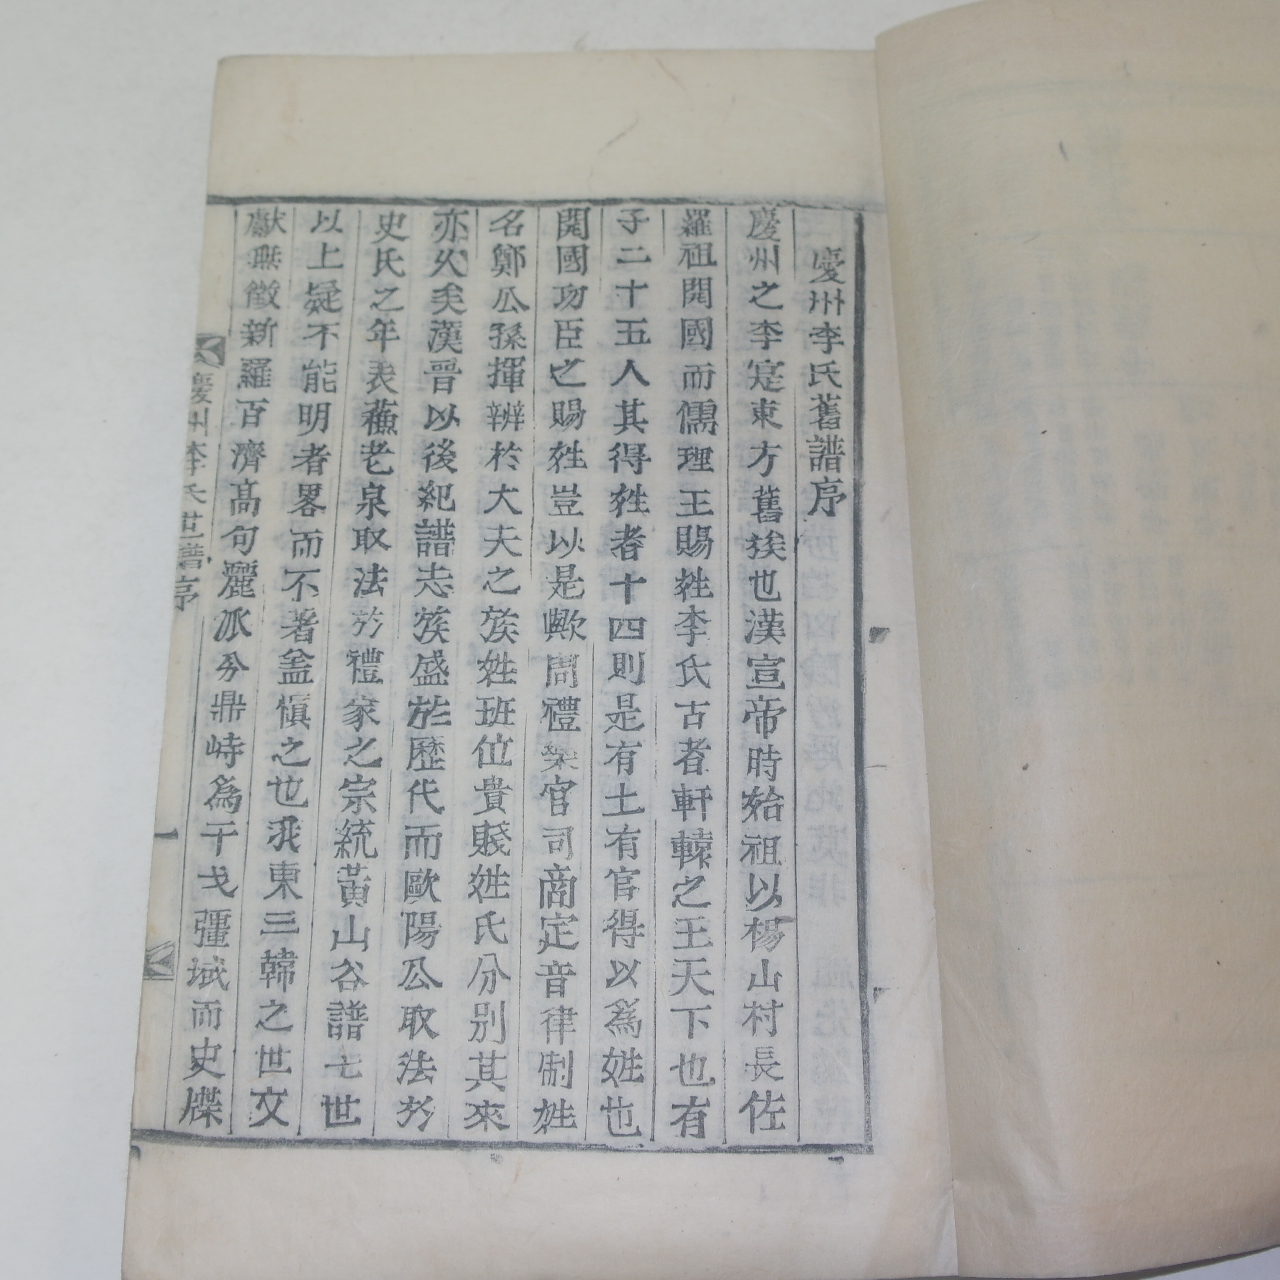 慶州李氏舊譜序
慶州之李寔東方舊族也漢宣帝時始祖以楊山村長佐
羅祖開國而儒理王賜姓李氏古者軒轅之王天下也有
子二十五人其得姓者十四則是有土有官得以爲姓也
開國功臣之賜姓豈以是歟周禮樂官司商定音律制姓
名鄭公孫揮辨於大夫之族姓班位貴賤姓氏分別其來
亦久矣漢晉以後紀譜志族盛於歷代而歐陽公取法於
史氏之年表蘓老泉取法於禮家之宗統黃山谷譜七世
以上疑不能明者畧而不著盖愼之也我東三韓之世文
獻無徵新羅百濟高句麗派分鼎峙爲干戈彊域而史牒
慶州李氏世譜序
一